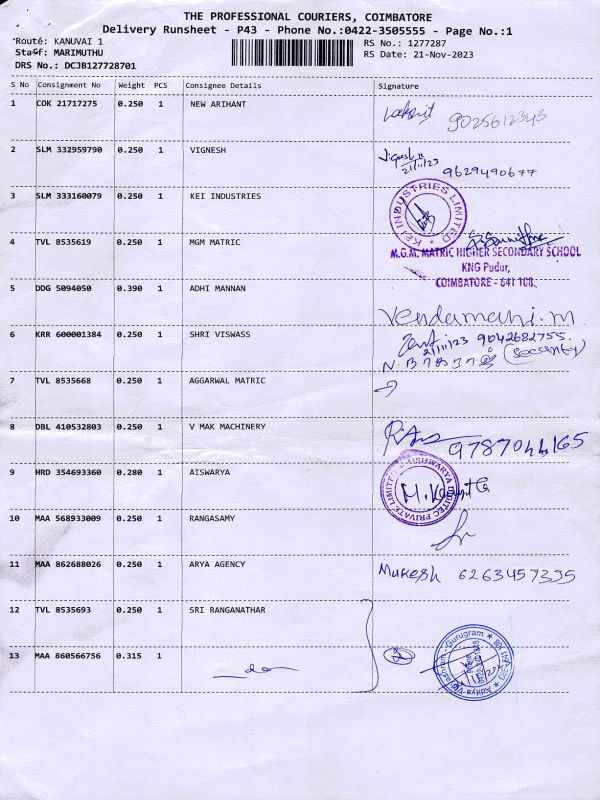 THE PROFESSIONAL COURIERS, COIMBATORE
Delivery Runsheet - P43 - Phone No.:0422-3505555 - Page No.:1
Route: KANUVAI 1 RS No.: 1277287
Staff: MARIMUTHU RS Date: 21-Nov-2023
DRS No.: DCJB127728701
S No Consignment No Weight PCS Consignee Details Signature
1 COK 21717275 0.250 1 NEW ARIHANT 9025612343
2 SLM 332959790 0.250 1 VIGNESH 21/11/23 9629490677
3 SLM 333160079 0.250 1 KEI INDUSTRIES KEI INDUSTRIES LIMITED
4 TVL 8535619 0.250 1 MGM MATRIC M.G.M. MATRIC HIGHER SECONDARY SCHOOL
KNG Pudur,
COIMBATORE - 641 108.
5 DDG 5094050 0.390 1 ADHI MANNAN Vendamani.m
6 KRR 600001384 0.250 1 SHRI VISWASS 21/11/23 9042682755
7 TVL 8535668 0.250 1 AGGARWAL MATRIC
8 DBL 410532803 0.250 1 V MAK MACHINERY 9787044165
9 HRD 354693360 0.280 1 AISWARYA AISHWARYA DIGITEC PRIVATE LIMITED
10 MAA 568933009 0.250 1 RANGASAMY
11 MAA 862688026 0.250 1 ARYA AGENCY Mukesh 6263457395
12 TVL 8535693 0.250 1 SRI RANGANATHAR
13 MAA 860566756 0.315 1 do